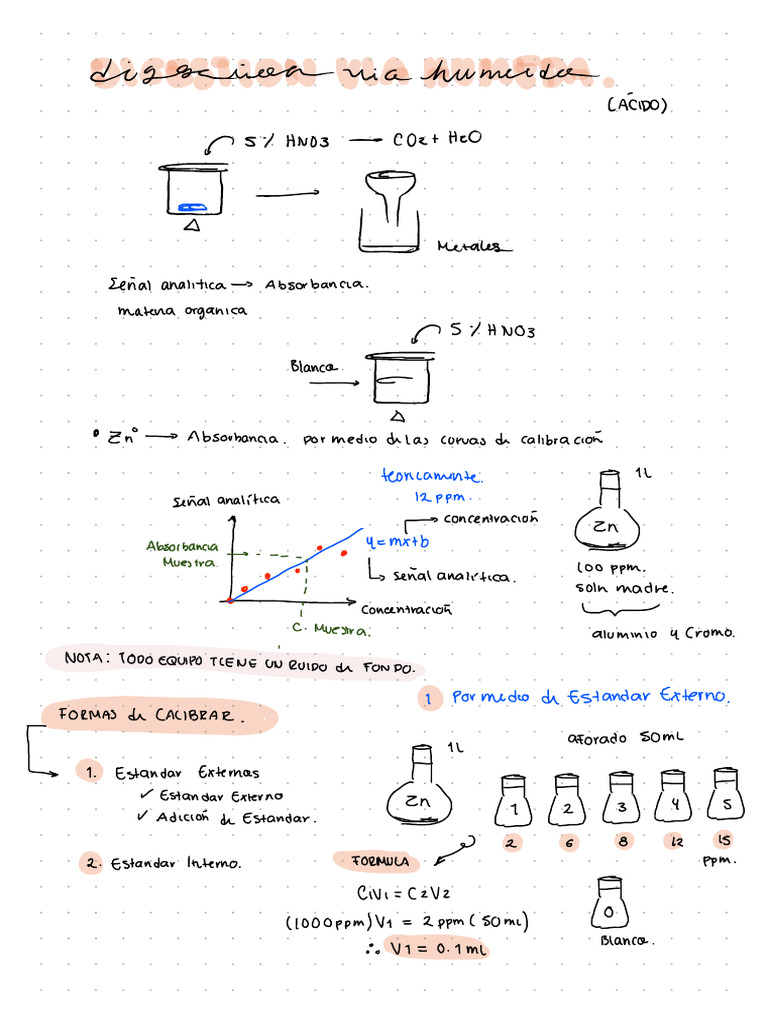 digestion via humeda.
(ÁCIDO)
5% HNO3 → CO2 + H2O
Metales
Señal analítica → Absorbancia.
materia organica
5% HNO3
Blanco
• Zn° → Absorbancia. por medio de las curvas de calibración
teoricamente.
12 ppm.
Señal analítica
concentración
y=mx+b
Absorbancia
Muestra.
señal analítica.
concentración
C. Muestra.
1L
Zn
100 ppm.
soln madre.
aluminio y Cromo.
NOTA: TODO EQUIPO TIENE UN RUIDO de FONDO.
FORMAS de CALIBRAR.
1. Estandar Externas
✓ Estandar Externo
✓ Adición de Estandar.
2. Estandar Interno.
1 Por medio de Estandar Externo.
aforado 50mL
1L
Zn
1 2 3 4 5
2 6 8 12 15
ppm.
FORMULA
C1V1 = C2V2
(1000ppm)V1 = 2 ppm (50ml)
∴ V1 = 0.1 ml
0
Blanco.